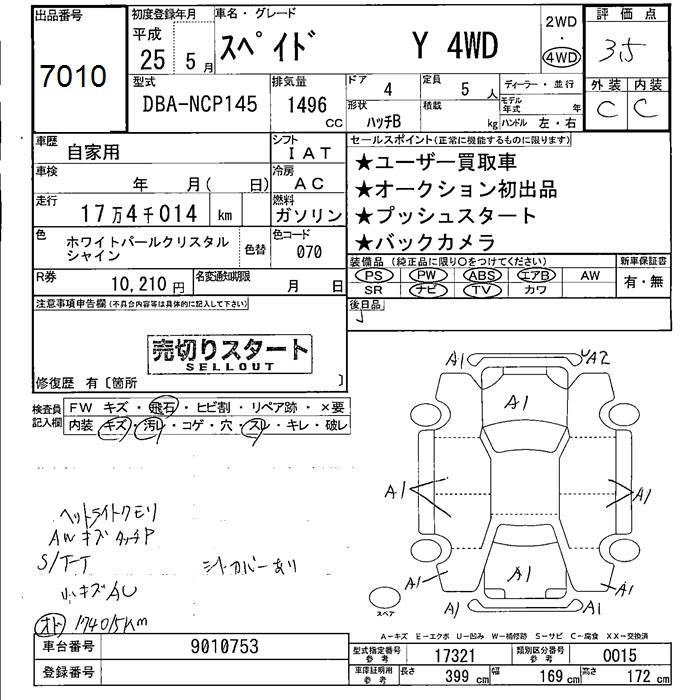 出品番号
7010
初度登録年月
平成
25年 5月
車名・グレード
スペイド Y 4WD
2WD
・
4WD
評価点
3.5
外装 内装
C C
型式
DBA-NCP145
排気量
1496
CC
ドア
4
定員
5人
形状
ハッチB
積載
kg
ディーラー・並行
モデル年式 年
ハンドル 左・右
車歴
自家用
シフト
IAT
車検
年 月( 日)
冷房
AC
走行
17万4千014 km
燃料
ガソリン
色
ホワイトパールクリスタル
シャイン
色替
色コード
070
R券
10,210円
名変通知期限
月 日
セールスポイント(正常に機能するものに限ります)
★ユーザー買取車
★オークション初出品
★プッシュスタート
★バックカメラ
装備品(純正品に限り○をつけてください)
PS PW ABS エアB AW
SR ナビ TV カワ
新車保証書
有・無
後日品
注意事項申告欄(不具合内容等は具体的に記入して下さい)
売切りスタート
SELLOUT
修復歴 有〔箇所 〕
検査員
記入欄
FW キズ・飛石・ヒビ割・リペア跡・×要
内装 キズ・汚レ・コゲ・穴・スレ・キレ・破レ
ヘットライトクモリ
AWキズタッチP
S/T-T
シートカバーあり
小キズAU
オド 174015Km
A1 A2
A1
A1 A1
A1 A1 A1
A1 A1
スペア
A-キズ E-エクボ U-凹み W-補修跡 S-サビ C-腐食 XX-交換済
車台番号
9010753
登録番号
型式指定番号
参考
17321
類別区分番号
参考
0015
車庫証明用
参考
長さ
399 cm
幅
169 cm
高さ
172 cm